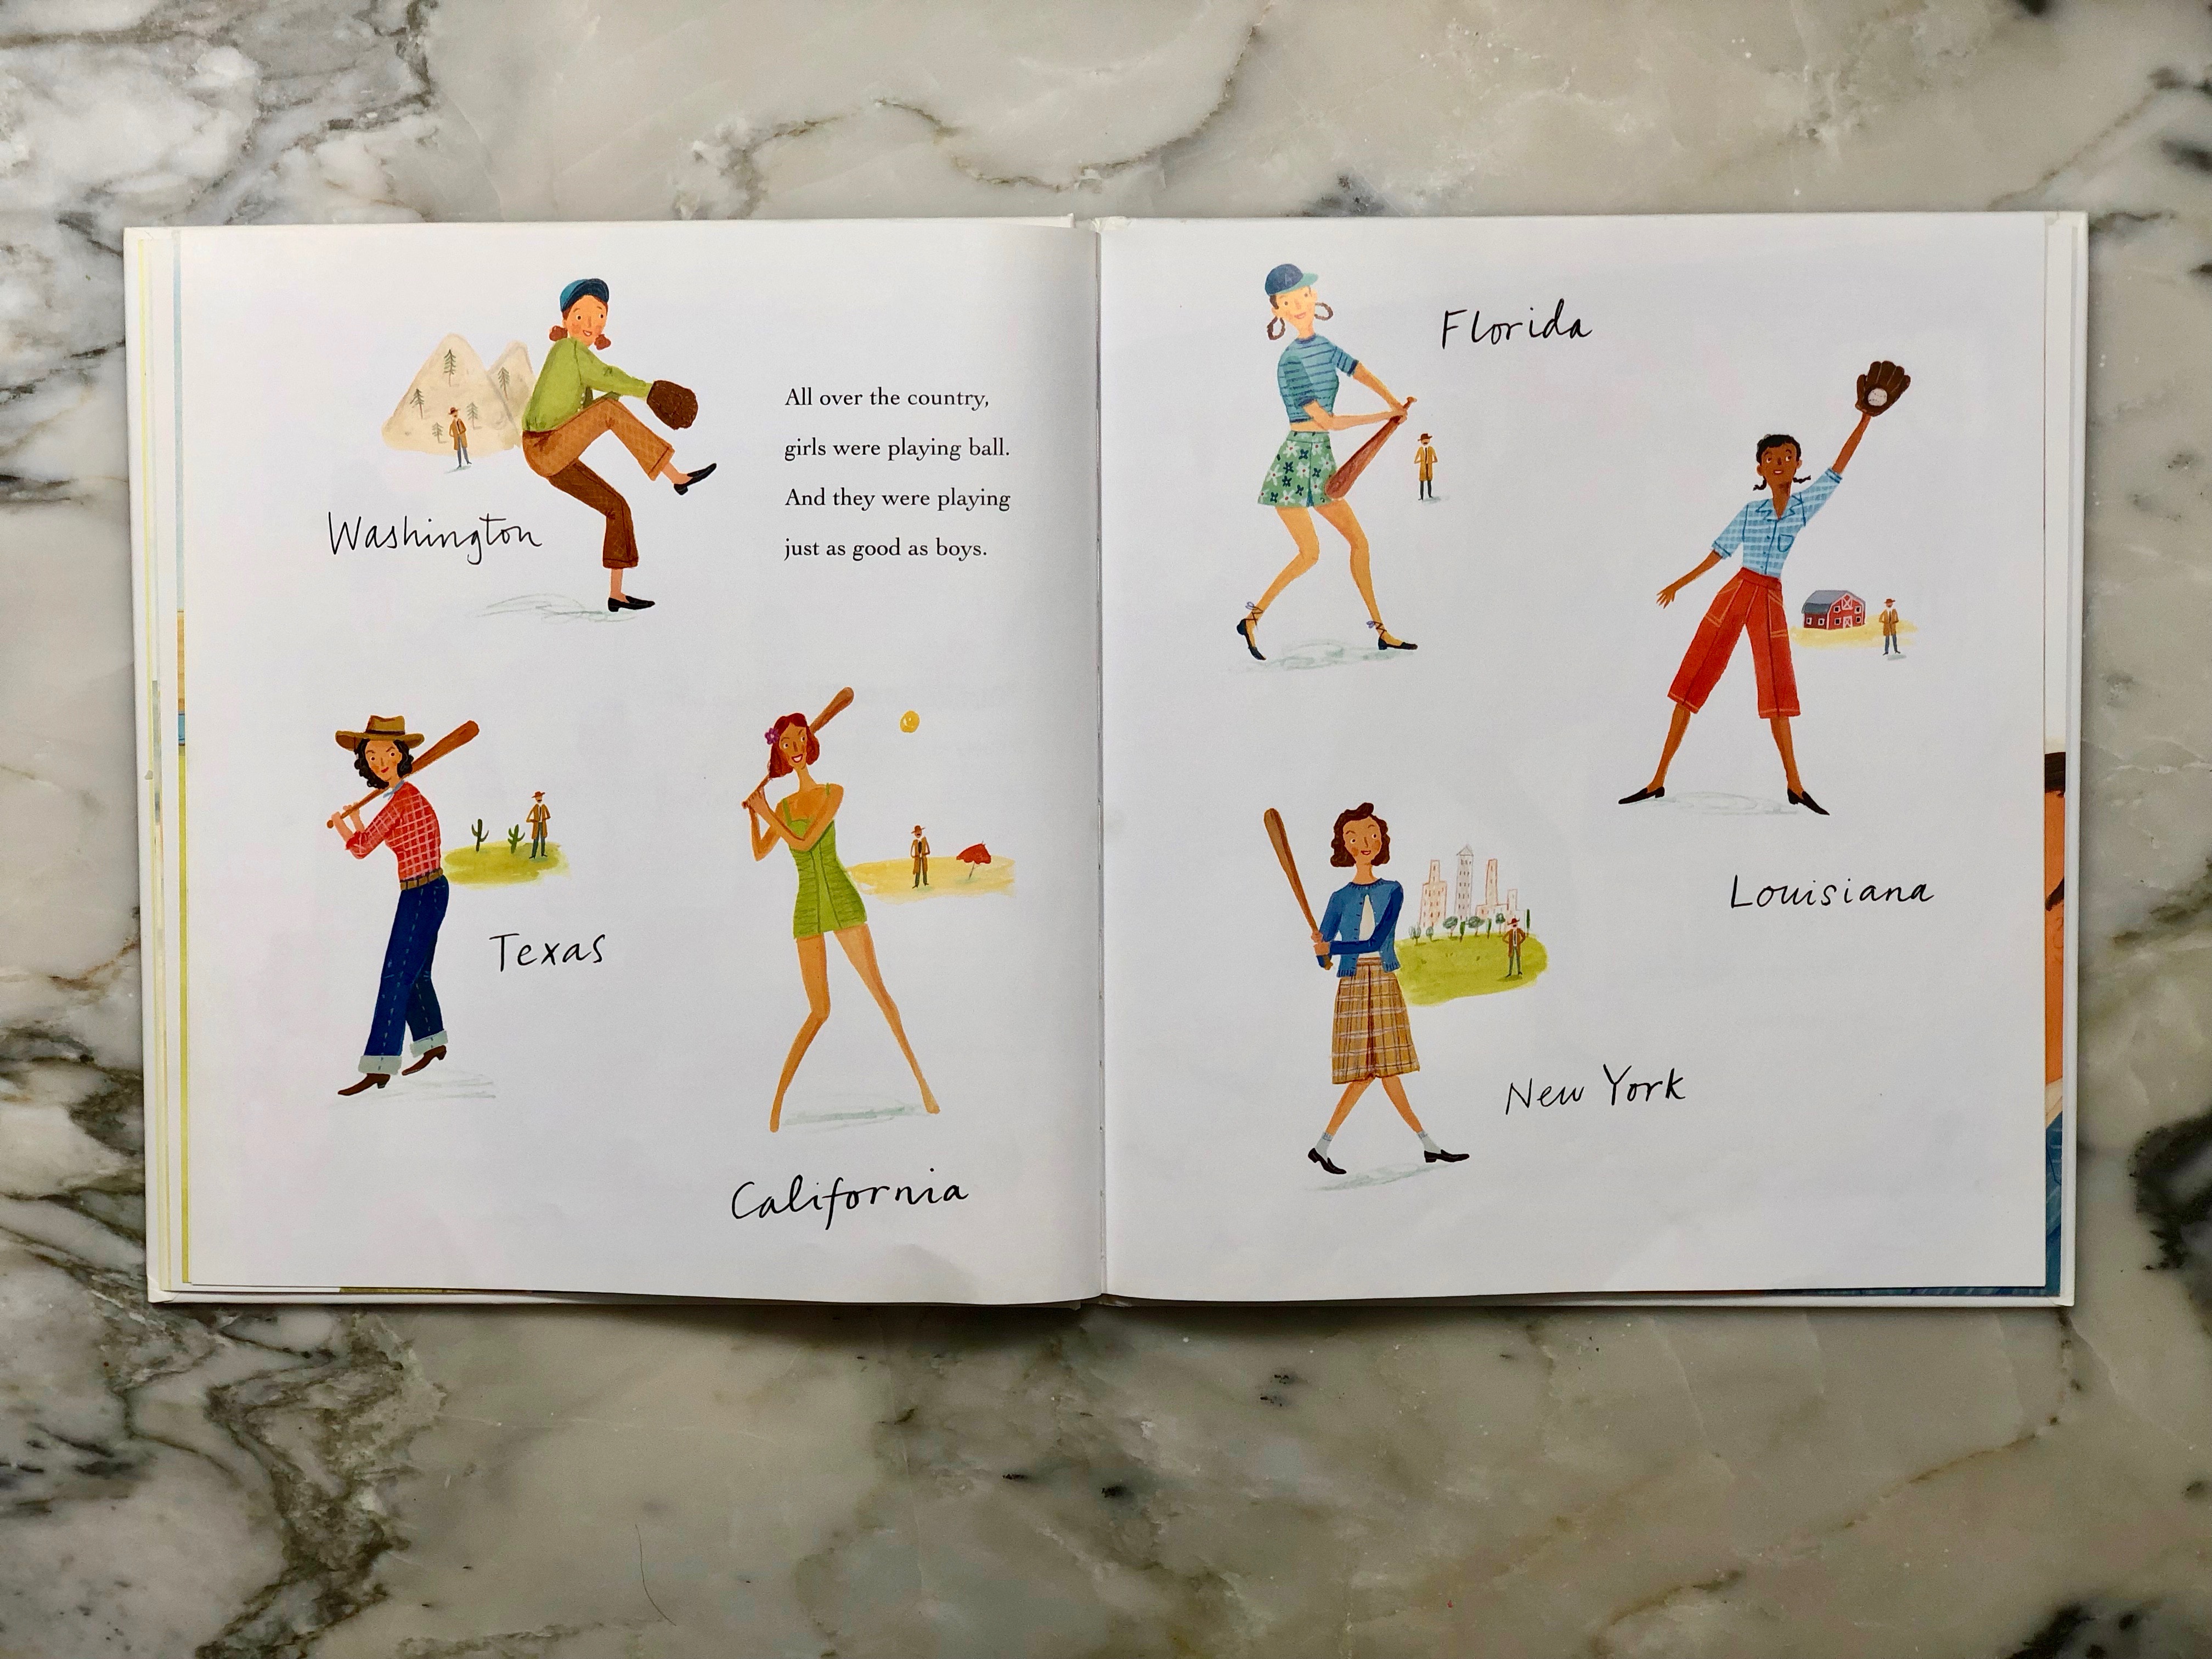 All over the country,
girls were playing ball.
And they were playing
just as good as boys.
Washington
Texas
California
Florida
Louisiana
New York